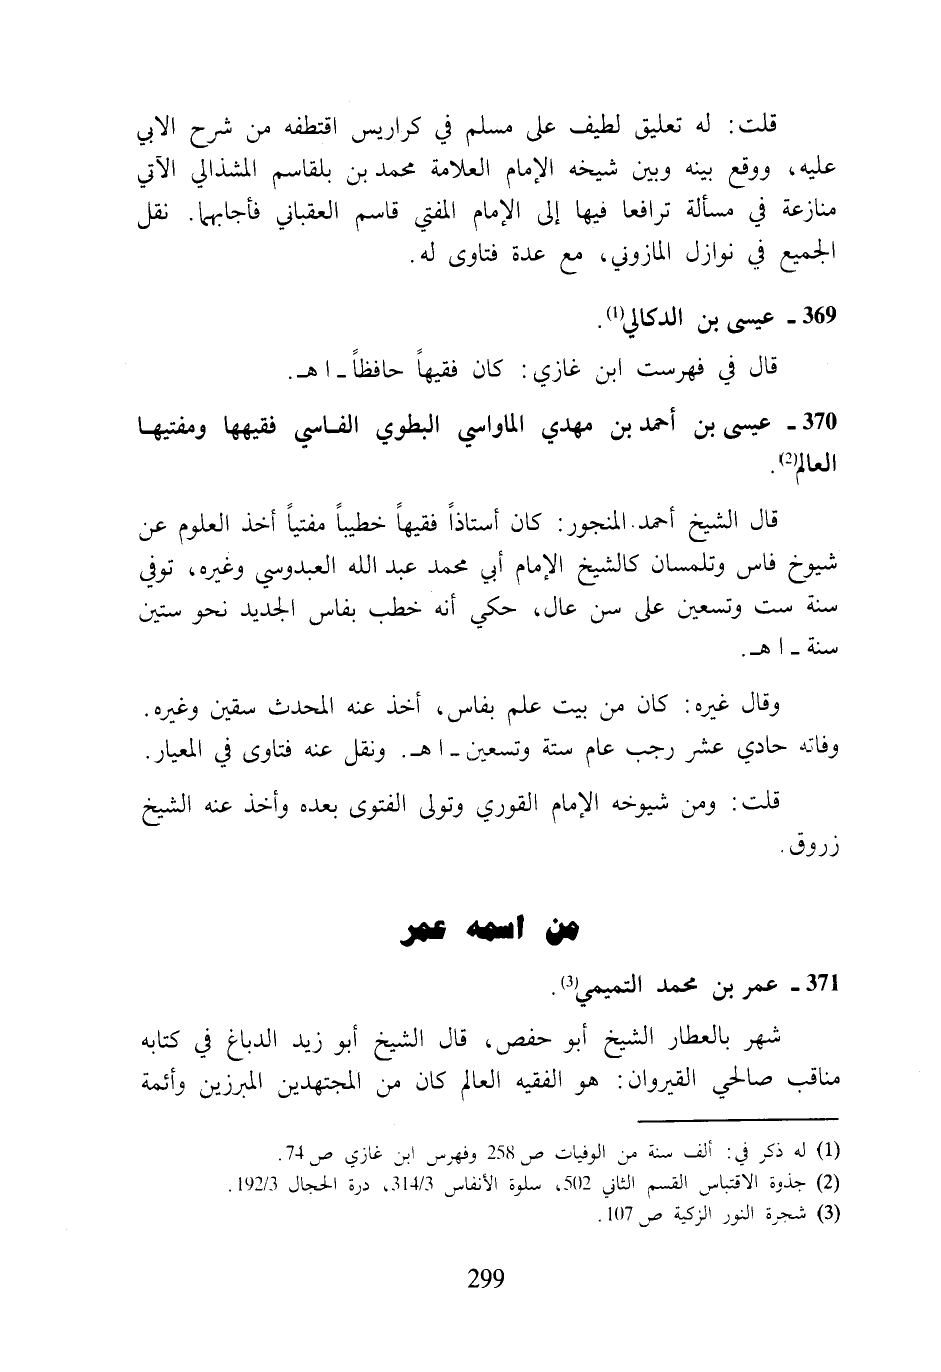 قلت: له تعليق لطيف على مسلم في كراريس اقتطفه من شرح الابي
عليه، ووقع بينه وبين شيخه الإمام العلامة محمد بن بلقاسم المشذالي الآتي
منازعة في مسألة ترافعا فيها إلى الإمام المفتي قاسم العقباني فأجابهما. نقل
الجميع في نوازل المازوني، مع عدة فتاوى له.
369 ـ عيسى بن الدكالي(1).
قال في فهرست ابن غازي: كان فقيهاً حافظاً ـ ا هـ.
370 ـ عيسى بن أحمد بن مهدي الماواسي البطوي الفاسي فقيهها ومفتيها
العالم(2).
قال الشيخ أحمد المنجور: كان أستاذاً فقيهاً خطيباً مفتياً أخذ العلوم عن
شيوخ فاس وتلمسان كالشيخ الإمام أبي محمد عبد الله العبدوسي وغيره، توفي
سنة ست وتسعين على سن عال، حكي أنه خطب بفاس الجديد نحو ستين
سنة ـ ا هـ.
وقال غيره: كان من بيت علم بفاس، أخذ عنه المحدث سقين وغيره.
وفاته حادي عشر رجب عام ستة وتسعين ـ ا هـ. ونقل عنه فتاوى في المعيار.
قلت: ومن شيوخه الإمام القوري وتولى الفتوى بعده وأخذ عنه الشيخ
زروق.
من اسمه عمر
371 ـ عمر بن محمد التميمي(3).
شهر بالعطار الشيخ أبو حفص، قال الشيخ أبو زيد الدباغ في كتابه
مناقب صالحي القيروان: هو الفقيه العالم كان من المجتهدين المبرزين وأئمة
(1) له ذكر في: ألف سنة من الوفيات ص 258 وفهرس ابن غازي ص 74.
(2) جذوة الاقتباس القسم الثاني 502، سلوة الأنفاس 314/3، درة الحجال 192/3.
(3) شجرة النور الزكية ص 107.
299